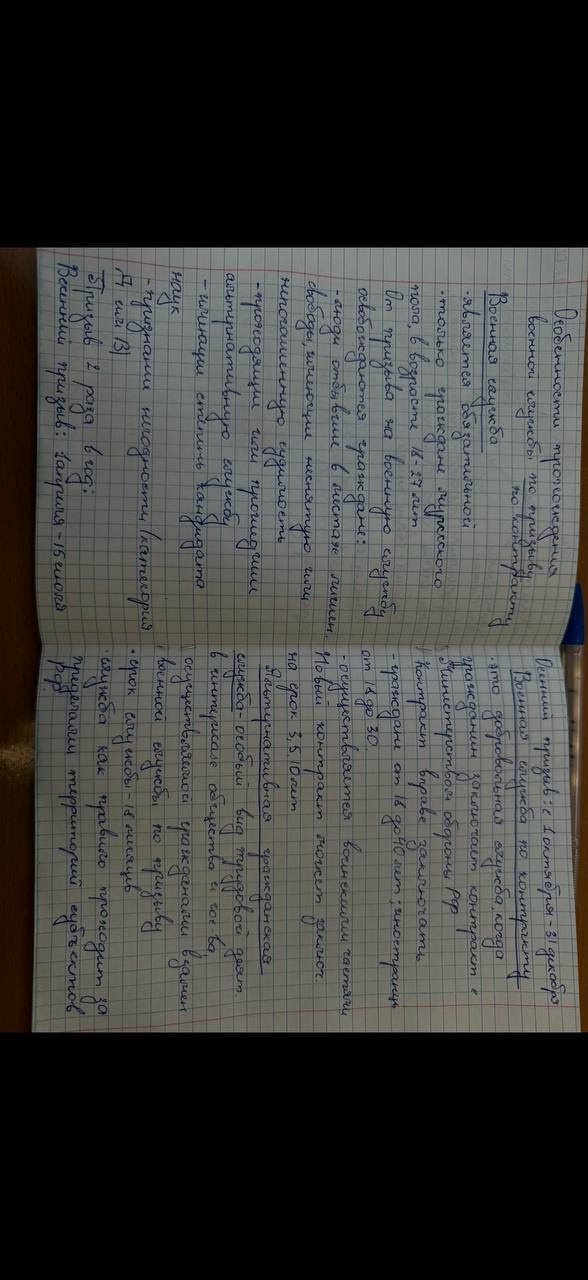 Особенности прохождения
военной службы по призыву
по контракту
Военная служба
· является обязательной
· только граждане мужского
пола, в возрасте 18-27 лет
От призыва на военную службу
освобождаются граждане:
- люди отбывшие в местах лишен.
свободы, имеющие неснятую или
непогашенную судимость
- проходящии или прошедшии
альтернативную службу
- имеющии степень кандидата
наук
- признаны негодности (категория
Д или В)
Призыв 2 раза в год:
Весенний призыв: 1 апреля - 15 июля
Осенний призыв: с 1 октября - 31 декабря
Военная служба по контракту
· это добровольная служба, когда
гражданин заключает контракт с
Министерством обороны РФ
Контракт вправе заключать
- граждане от 18 до 40 лет; иностранцы
от 18 до 30
- осуществляется воинскими частями
Новый контракт может заключ.
на срок 3, 5, 10 лет
Альтернативная гражданская
служба - особый вид трудовой деят.
в интересах общества и гос-ва
осуществляемой гражданами взамен
военной службы по призыву
· срок службы - 18 месяцев
· служба как правило проходит за
пределами территорий субъектов
РФ.